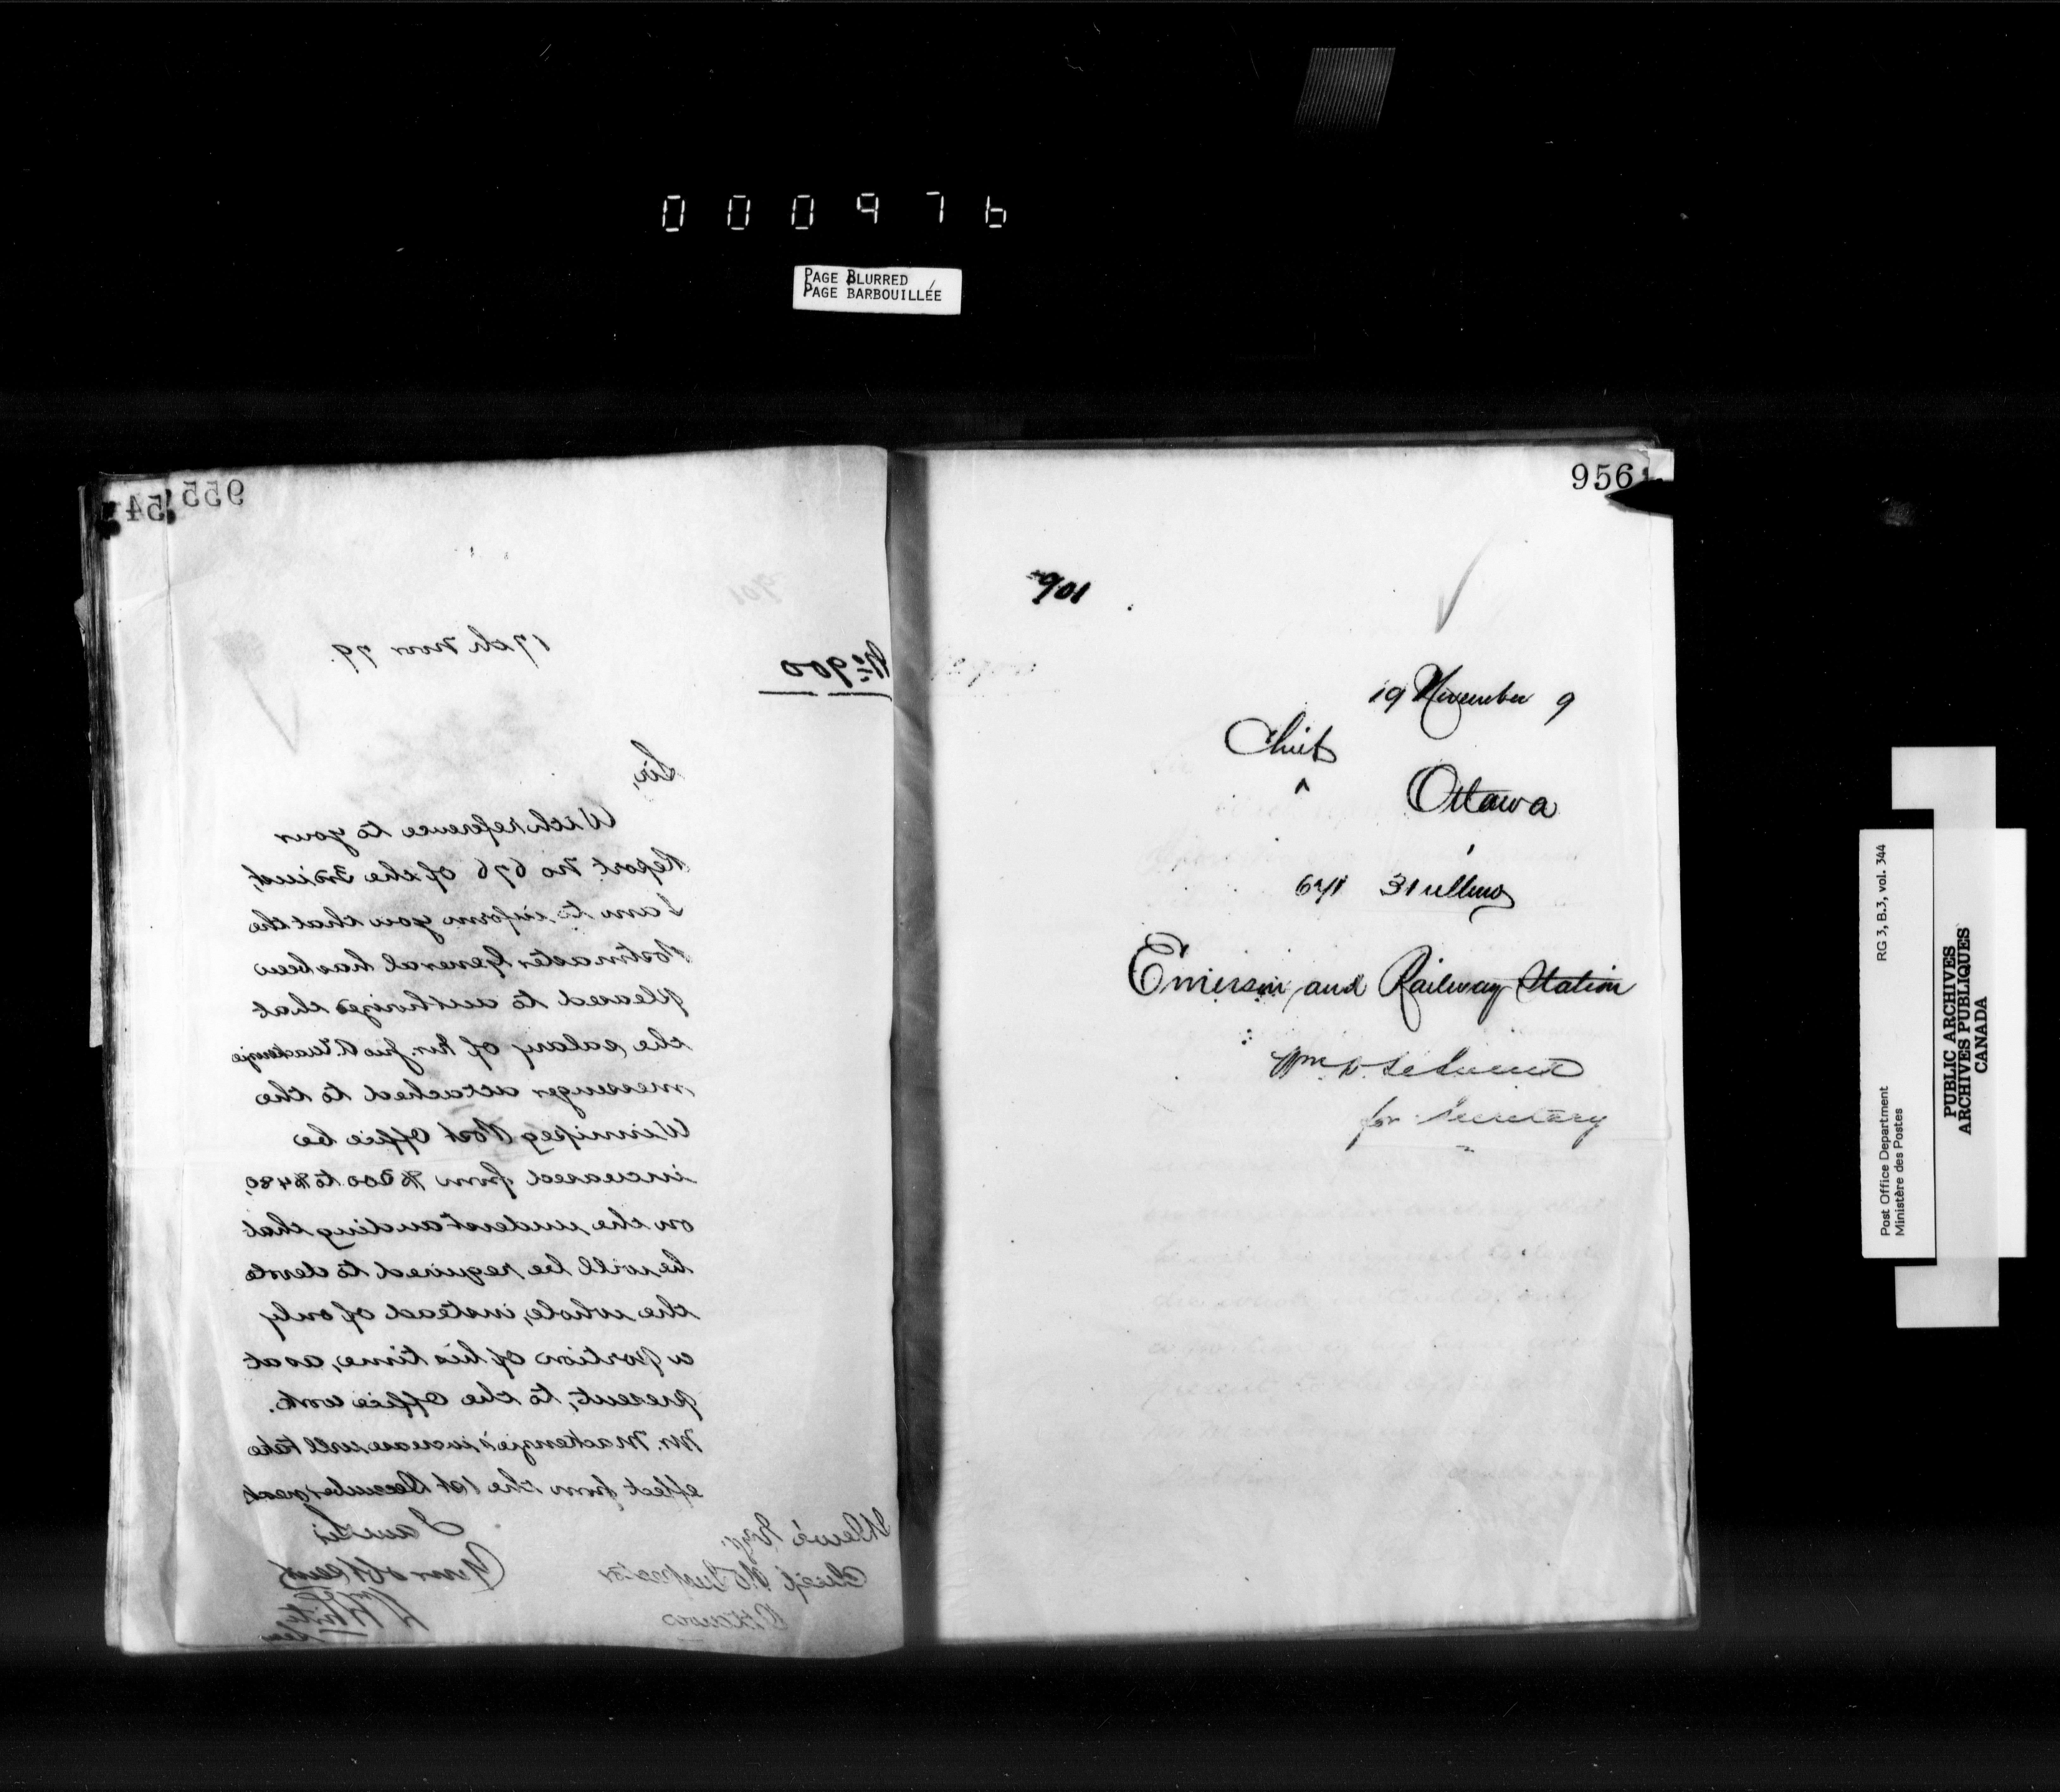 000976
PAGE BLURRED
PAGE BARBOUILLÉE
54
955
901
No 900
17th Nov 79.
Sir,
With reference to your
Report No 676 of the inst,
I am to inform you that the
Postmaster General has been
pleased to authorize that
the salary of Mr. Jno A. Mackenzie
messenger attached to the
Winnipeg Post Office be
increased from $200 to $480,
on the understanding that
he will be required to devote
the whole, instead of only
a portion of his time, as at
present, to the Office work.
Mr. Mackenzie's increase will take
effect from the 1st December next
I am Sir
Your ob Servt
Wm White
Sec
Chief P.O. Inspector
Ottawa
956
901
19 November 9
Chief
^
Ottawa
Emerson and Railway Station
Wm. D. LeSueur
for Secretary
Post Office Department
Ministère des Postes
RG 3, B.3, vol. 344
PUBLIC ARCHIVES
ARCHIVES PUBLIQUES
CANADA